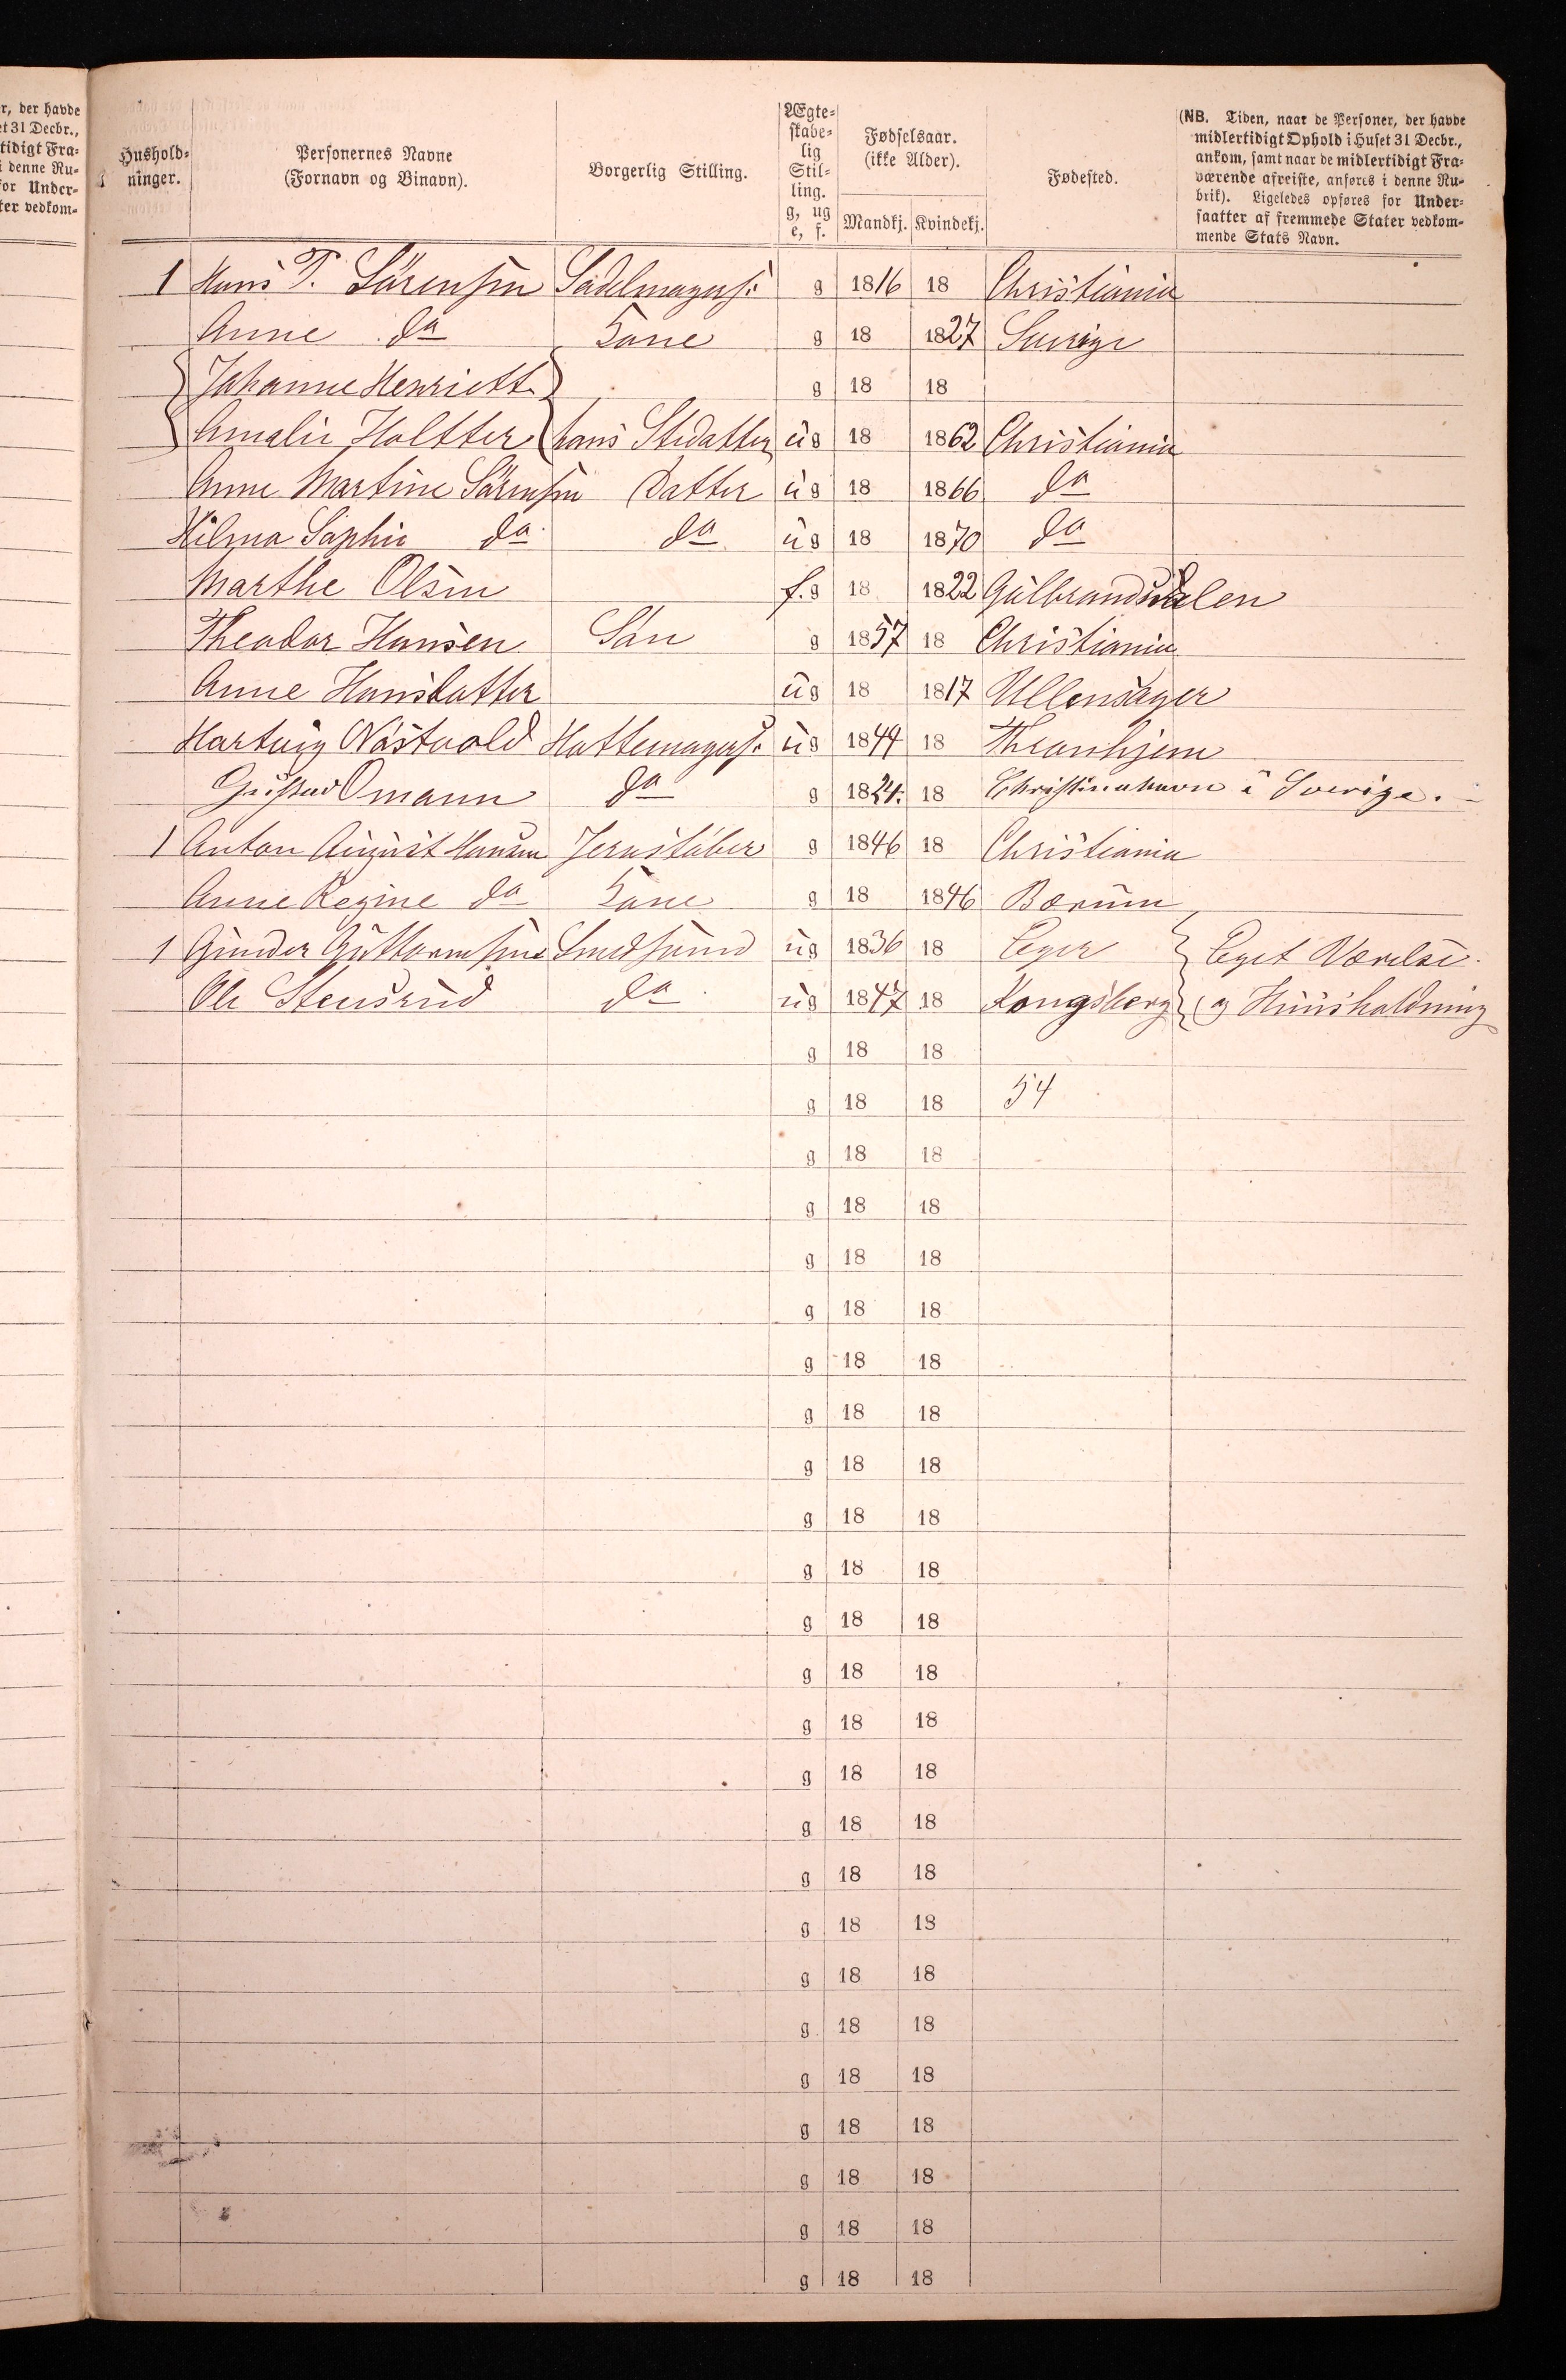 r, der havde
et 31 Decbr.,
tidigt Fra-
i denne Ru-
for Under-
ter vedkom-
Hushold-
ninger.
Personernes Navne
(Fornavn og Binavn).
Borgerlig Stilling.
Ægte-
skabe-
lig
Stil-
ling.
g, ug
e, f.
Fødselsaar.
(ikke Alder).
Mandkj. Kvindekj.
Fødested.
(NB. Tiden, naar de Personer, der havde
midlertidigt Ophold i Huset 31 Decbr.,
ankom, samt naar de midlertidigt Fra-
værende afreiste, anføres i denne Ru-
brik). Ligeledes opføres for Under-
saatter af fremmede Stater vedkom-
mende Stats Navn.
1 Hans T. Sörensen Sadelmagers: g 1816 18 Christiania
Anne do Kone g 18 1827 Sverige
Johanne Henriette g 18 18
Amalie Holtter hans Stedatter ug 18 1862 Christiania
Anne Martine Sörensen Datter ug 18 1866 do
Hilma Sophie do do ug 18 1870 do
Marthe Olsen f. g 18 1822 Gulbrandsdalen
Theodor Hansen Sön g 1857 18 Christiania
Anne Hansdatter ug 18 1817 Ullensager
Hartvig Nöstvold Hattemagers: ug 1844 18 Thronhjem
Gustav Omann do g 1824. 18 Christinehavn i Sverige. -
1 Anton August Hansen Jernstöber g 1846 18 Christiania
Anne Regine do Kone g 18 1846 Bærum
1 Gunder Guttormsen Smedsvend ug 1836 18 Eger Eget Værelse
Ole Stensrud do ug 1847 18 Kongsberg og Huusholdning
g 18 18
g 18 18 54
g 18 18
g 18 18
g 18 18
g 18 18
g 18 18
g 18 18
g 18 18
g 18 18
g 18 18
g 18 18
g 18 18
g 18 18
g 18 18
g 18 18
g 18 18
g 18 18
g 18 18
g 18 18
g 18 18
g 18 18
g 18 18
g 18 18
g 18 18